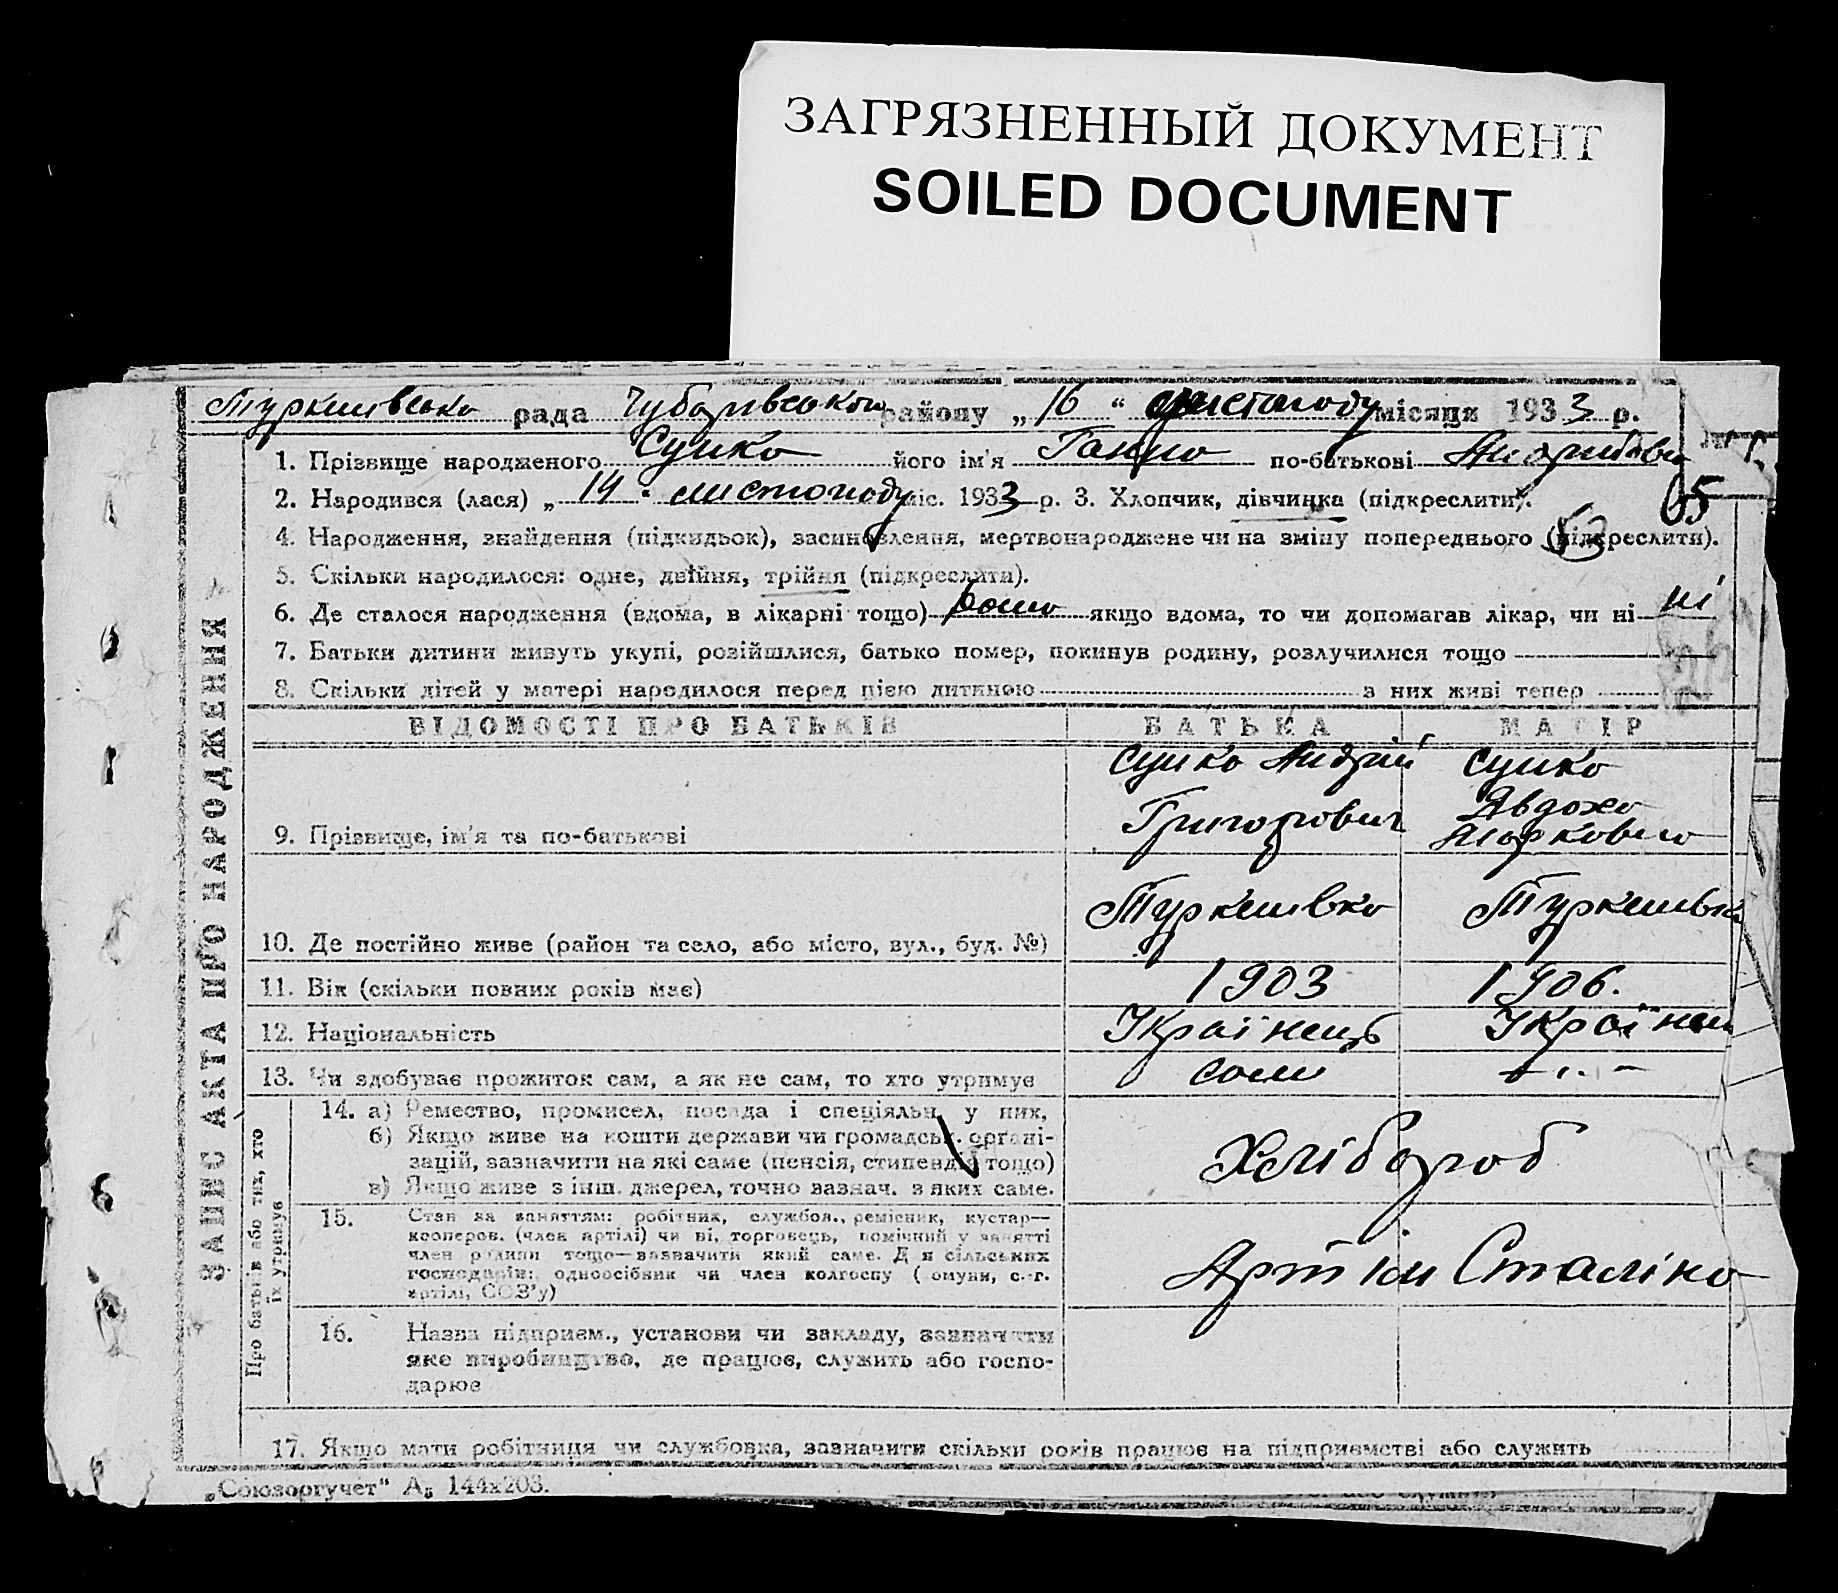 ЗАГРЯЗНЕННЫЙ ДОКУМЕНТ
SOILED DOCUMENT
рада району „16“ листопаду місяця 1933 р.
1. Прізвище народженого його ім'я Ганна по-батькові
65
2. Народився (лася) „14" листопаду міс. 1933 р. 3. Хлопчик, дівчинка (підкреслити).
4. Народження, знайдення (підкидьок), засиновлення, мертвонароджене чи на зміну попереднього (підкреслити).
5. Скільки народилося: одне, двійня, трійня (підкреслити).
6. Де сталося народження (вдома, в лікарні тощо) якщо вдома, то чи допомагав лікар, чи ні ні
7. Батьки дитини живуть укупі, розійшлися, батько помер, покинув родину, розлучилися тощо
8. Скільки дітей у матері народилося перед цією дитиною з них живі тепер
ВІДОМОСТІ ПРО БАТЬКІВ БАТЬКА МАТІР
Андрій
Григорович Явдоха
9. Прізвище, ім'я та по-батькові Марковна
10. Де постійно живе (район та село, або місто, вул., буд. №)
11. Вік (скільки повних років має) 1903 1906.
12. Національність Українець Українец
13. Чи здобуває прожиток сам, а як не сам, то хто утримує сам — „ —
14. а) Ремество, промисел, посада і спеціяльн. у них,
б) Якщо живе на кошти держави чи громадськ. органі-
зацій, зазначити на які саме (пенсія, стипендія тощо) Хлібороб
в) Якщо живе з інш. джерел, точно зазнач. з яких саме.
15. Стан за заняттям: робітник, службов., ремісник, кустар—
кооперов. (член артілі) чи ні, торговець, помічний у занятті
член родини тощо—зазначити який саме. Для сільських
господарів: одноосібник чи член колгоспу (комуни, с.-г. Артіль Сталіна
артілі, СОЗ'у)
16. Назва підприєм., установи чи закладу, зазначити
яке виробництво, де працює, служить або госпо-
дарює
17. Якщо мати робітниця чи службовка, зазначити скільки років працює на підприємстві або служить
„Союзоргучет" А₅ 144х203.
ЗАПИС АКТА ПРО НАРОДЖЕННЯ
Про батьків або тих, хто
їх утримує